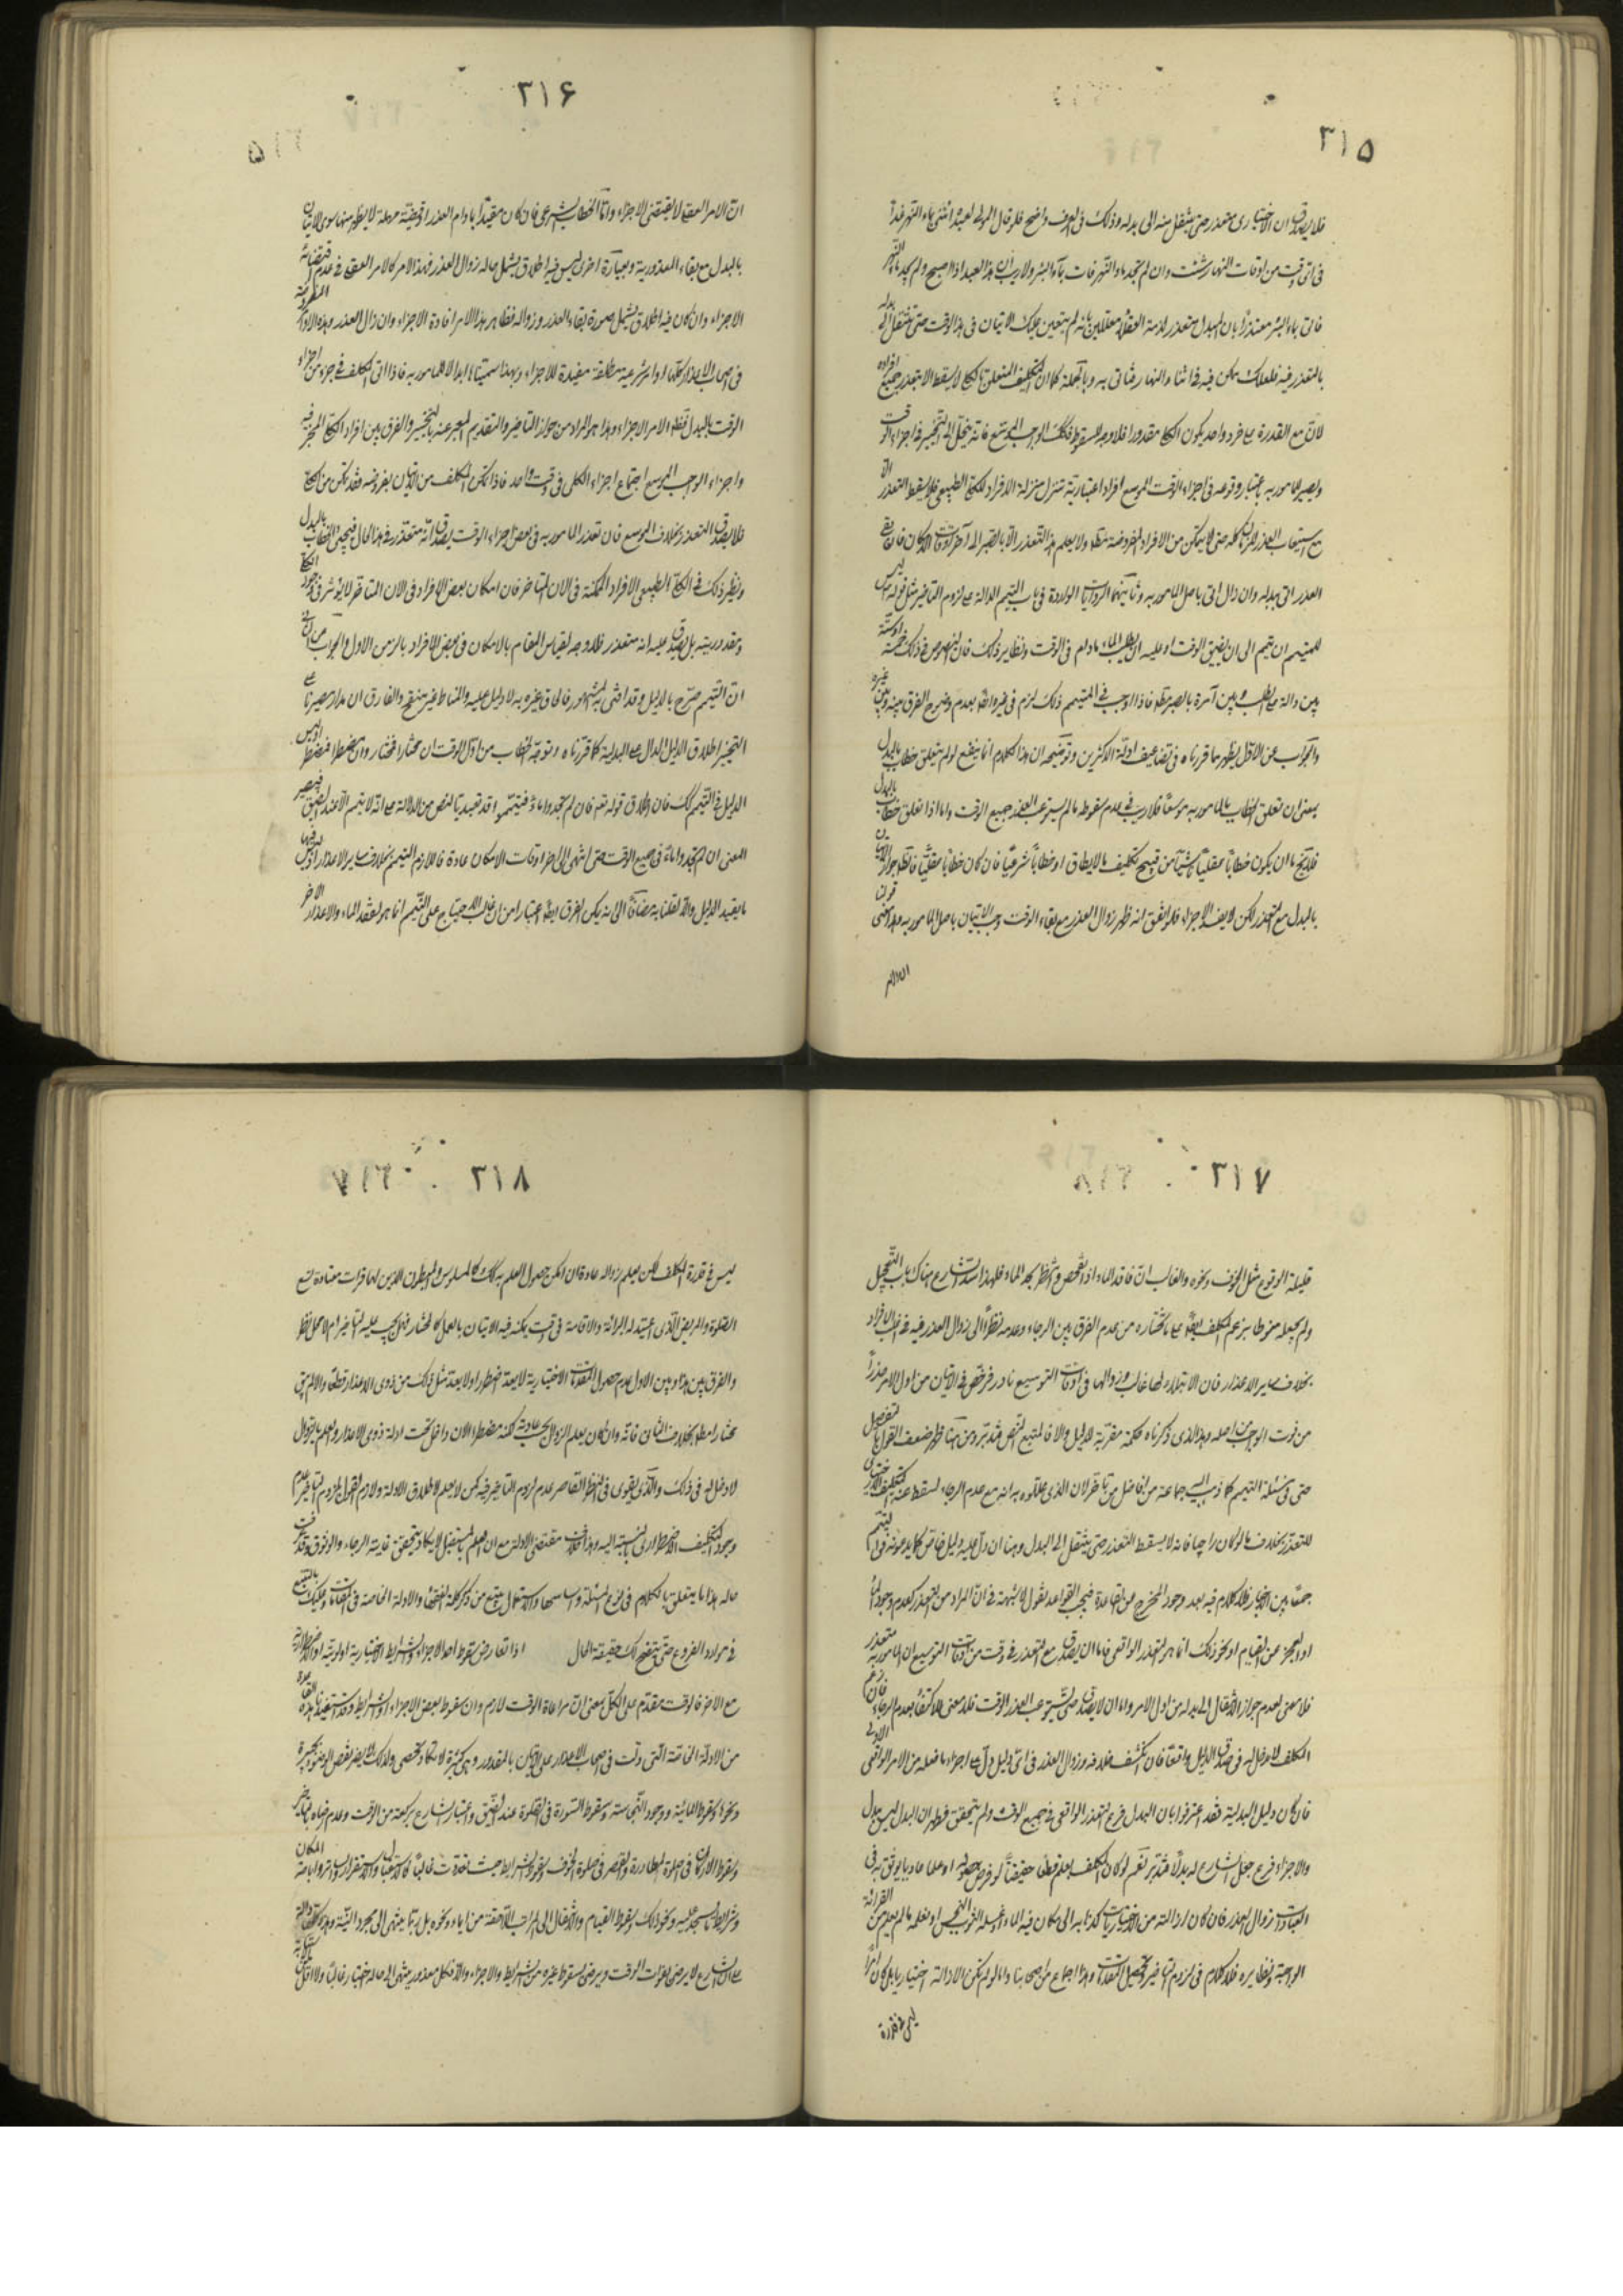 ۳۱۵
فلا يصدق ان الاختياري متعذر حتى ينتقل منه الى بدله وذلك في العرف واضح فلو قال المولى لعبده ائتني بماء النهر غداً
في اي وقت من اوقات النهار شئت وان لم تجد ماء النهر فات بماء البئر ولا ريب ان هذا العبد اذا اصبح ولم يجد ماء النهر
فاتى بماء البئر معتذراً بان المبدل متعذر لذمه العقلاء معللين بانه لم يتعين عليك الاتيان في هذا الوقت حتى تنتقل الى بدله
بالتعذر فيه فلعلك تمكن فيه في اثناء النهار فتاتي به وبالجملة كما ان التكليف المتعلق بالكلي لا يسقط الا بتعذر جميع افراده
لان مع القدرة على فرد واحد يكون الكلي مقدورا فلا وجه للسقوط فكذلك الواجب الموسع فانه ينحل الى التخيير في اجزاء الوقت
ويصير المامور به باعتبار وقوعه في اجزاء الوقت الموسع افرادا اعتبارية تنزل منزلة الافراد للكلي الطبيعي فلا يسقط التعذر الا
مع استيعاب العذر للزمان كله حتى لا يتمكن من الافراد المفروضة مطلقا ولا يعلم هذا التعذر الا بالصبر الى آخر اوقات الامكان فان بقي
العذر اتى ببدله وان زال اتى باصل المامور به وثانيهما الروايات الواردة في باب التيمم الدالة على لزوم التاخير مثل قوله ليس
للمتيمم ان يتيمم الى ان يضيق الوقت او عليه ان يطلب الماء مادام في الوقت ونظاير ذلك فان النصوص في ذلك خمسة او ستة
بين دالة على الطلب وبين آمرة بالصبر مطلقا فاذا وجب في المتيمم ذلك لزم في غيره ايضا بعدم وضوح الفرق بينه وبين غيره
والجواب عن الاول يظهر مما قررناه في تضاعيف ادلة الاكثرين وتوضيحه ان هذا الكلام انما ينفع لو لم يتعلق خطاب بالبدل
بمعنى ان تعلق الخطاب بالمامور به موسعاً فلا ريب في عدم سقوطه ما لم يستوعب العذر جميع الوقت واما اذا تعلق خطاب بالبدل
فلا يخ اما ان يكون خطاباً عقلياً ناشياً من قبح تكليف ما لا يطاق او خطاباً شرعياً فان كان خطاباً عقلياً فالظ جواز الاتيان
بالبدل مع التعذر لكن لا يفيد الاجزاء فلو اتفق انه ظهر زوال العذر مع بقاء الوقت وجب الاتيان باصل المامور به
۳۱۶
ان الامر العقلي لا يقتضي الاجزاء واما الخطاب الشرعي فان كان مقيداً بادام العذر او قضية مهملة لا يظهر منها سوى الاتيان
بالبدل مع بقاء المعذورية وبعبارة اخرى ليس فيه اطلاق يشمل حاله زوال العذر فهذا الامر كالامر العقلي في عدم اقتضائه
الاجزاء وان كان فيه اطلاق يشمل صورة بقاء العذر وزواله فظاهر هذا الامر افادة الاجزاء وان زال العذر وهذه الاوامر
في اصحاب الاعذار كلها اوامر شرعية مطلقة مفيدة للاجزاء وبهذا سميناها ابدالا للمامور به فاذا اتى المكلف في جزء من اجزاء
الوقت بالبدل فظاهر الامر الاجزاء وهذا هو المراد من جواز التاخير والتقديم المعبر عنه بالتخيير والفرق بين افراد الكلي المخير فيه
واجزاء الواجب الموسع اجتماع اجزاء الكلي في وقت واحد فاذا تمكن المكلف من الاتيان بفرد منه فقد تمكن من الكلي
فلا يصدق التعذر بخلاف الموسع فان تعذر المامور به في بعض اجزاء الوقت يصدق انه متعذر في هذا الحال فيجئ الخطاب بالبدل
ونظير ذلك في الكلي الطبيعي الافراد الممكنة في الان المتاخر فان امكان بعض الافراد في الان المتاخر لا يؤثر في وجود الكلي
ومقدوريته بل يصدق عليه انه متعذر فلا وجه لقياس المقام بالامكان في بعض الافراد بالزمن الاول والجواب عن الثاني
ان التيمم خرج بالدليل وقد افتى به المشهور فالحاق غيره به لا دليل عليه والمناط غير منقح والفارق ان مدار مصيرنا على
التخيير اطلاق الدليل الدال على البدلية كما قررناه وتوجه الخطاب من اول الوقت ان مختارا فمختار وان مضطرا فمضطر وليس
الدليل في التيمم كذلك فان اطلاق قوله تعم فان لم تجدوا ماءً فتيمموا قد تقيد بتا النص من الدلالة على انه لا يتيمم الا عند الضيق فيصير
المعنى ان لم تجدوا ماءً في جميع الوقت حتى انتهى الى اخر اوقات الامكان عادة فاللازم التيمم بخلاف ساير الاعذار وليس فيها
ما يقيد الدليل والا لقلنا به مضافاً الى انه يمكن الفرق ايضا اعتبارا من ان غالب الاحتياج على التيمم انما هو لفقد الماء والاعذار الاخر
۳۱۷
قليلة الوقوع مثل الخوف ونحوه والغالب ان فاقد الماء اذا تفحص وانتظر يجد الماء فلهذا سد الشارع هناك باب التعجيل
ولم يجعله منوطا بزعم المكلف ايضا على ما نختاره من عدم الفرق بين الرجاء وعدمه نظراً الى زوال العذر فيه في غالب الافراد
بخلاف ساير الاعذار فان الابتلاء لها غالب وزوالها في اوقات التوسيع نادر فرخص في الاتيان من اول الامر حذراً
من فوت الواجب من اصله وهذا الذي ذكرناه حكمة مقربة للدليل والا فالمتبع النص فتدبر ومن هنا ظهر ضعف القول بالتفصيل
حتى في مسئلة التيمم كما ذهب اليه جماعة من افاضل من تاخر لان الذي عللوه به انه مع عدم الرجاء يسقط عنه التكليف الاختياري
للتعذر بخلاف ما لو كان راجيا فانه لا يسقط التعذر حتى ينتقل الى البدل وهنا ان دل عليه دليل خاص كما يدعونه في التيمم
جمعاً بين الاخبار فلا كلام فيه بعد وجود المخرج من القاعدة فيجب القواعد نقول لا شبهة في ان المراد من التعذر كعدم وجود الماء
او العجز عن القيام او نحو ذلك انما هو التعذر الواقعي فاما ان يصدق مع التعذر في وقت من اوقات التوسيع ان المامور به متعذر
فلا معنى لعدم جواز الانتقال الى بدله من اول الامر واما ان لا يصدق حتى يستوعب العذر الوقت فلا معنى للاكتفاء بعدم الرجاء فان زعم
المكلف لا مدخل له في صدق الدليل واقعاً فان انكشف خلافه وزوال العذر ففي اي دليل دل على اجزاء ما فعله من الامر الواقعي الاولي
فان كان دليل البدلية فقد اعترفوا بان البدل فرع التعذر الواقعي في جميع الوقت ولم يتحقق فظهر ان البدل ليس ببدل
والاجزاء فرع جعل الشارع له بدلاً فتدبر نعم لو كان المكلف يعلم قطعا حقيقتاً لو فرض حصوله او علما عاديا يوثق به في
العبادات زوال العذر فان كان ازالته من الاختياريات كذهابه الى مكان فيه الماء او غسله الثوب النجس او تعلمه ما لم يعلم من القرائة
الواجبة ونظايره فلا كلام في لزوم التاخير وتحصيل المقدمات وهذا اجماع من اصحابنا واما لو لم تكن الازالة اختياريا بل كان امراً
ليس في قدرة
۳۱۸
ليس في قدرة المكلف لكن يعلم بزواله عادة ان امكن حصول العلم به كذلك كالمسلوس والمبطون الذين لهما فترات معتادة تسع
الصلوة والمريض الذي اعتيد له البرائة والافاقة في وقت يمكنه فيه الاتيان بالعمل كالمختار فهل يجب عليه التاخير ام لا محل نظر
والفرق بين هذا وبين الاول عدم حصول المقدمات الاختيارية لا يعد اضطرارا ولا يعد مثل ذلك من ذوي الاعذار قطعا والا لم يبق
مختار اصلا بخلاف الثاني فانه وان كان يعلم الزوال بحسب عادته لكنه مضطر الان داخل تحت ادلة ذوي الاعذار والعلم بالزوال
لا دخل له في ذلك والذي يقوى في النظر القاصر عدم لزوم التاخير فيه كمن لا يعلم لاطلاق الادلة ولازم القول بلزوم التاخير عدم
وجود التكليف الاضطراري بالنسبة اليه وهذا خلاف مقتضى الادلة مع ان العلم بالمستقبل لا يكاد يتحقق غايته الرجاء والوثوق وقد عرفت
حاله هذا ما يتعلق بالكلام في فروع المسئلة واساسها والاستدلال يتبع من ذكر كلمة الفقهاء والادلة الخاصة في المقامات وعليك بالتتبع
في موارد الفروع حتى يتضح لك حقيقة الحال اذا تعارض سقوط احد الاجزاء والشرايط الاختيارية اولوية او الاضطرارية
مع الاخر فالوقت مقدم على الكل بمعنى ان مراعاة الوقت لازم وان سقوط بعض الاجزاء او الشرايط وقد استفيد هذه القاعدة
من الادلة الخاصة التي دلت في اصحاب الاعذار على الاتيان بالمقدور وهي كثيرة لا تكاد تحصى ولذلك لا يضر نقص الوضوء بجبيرة
ونحوها وسقوط المائية ووجود النجاسة وسقوط السورة في الصلوة عند الضيق واختيار الشارع بركعة من الوقت وعدم رضاه بالتاخير
وسقوط الاركان في صلوة المطاردة والقصر في صلوة الخوف وسقوط الشرايط حيث تعذرت غالباً كالاستقبال والاستقرار والساتر واباحة المكان
وشرايط ما يسجد عليه ونحو ذلك وسقوط القيام والانتقال الى المراتب اللاحقة من ايماء ونحوه بل ربما ينتهي الى مجرد النية وهذه كلها دالة
على ان الشارع لا يرضى بفوات الوقت ويرضى بسقوط غيره من الشرايط والاجزاء والا فكل معذور ينتهي الى حاله اختيار غالبا ولا اقل